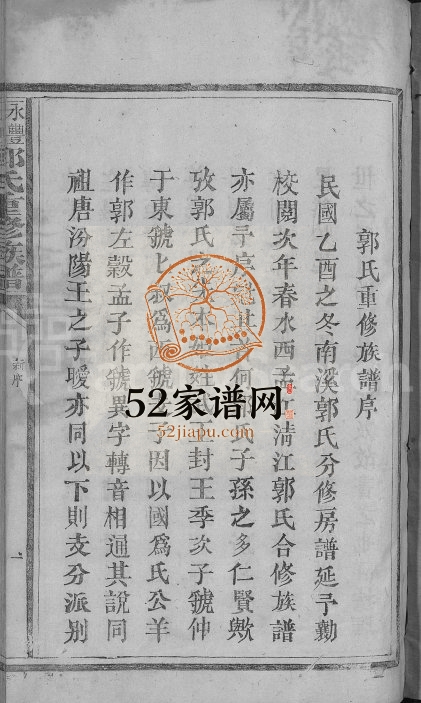 郭氏重修族譜序
民國乙酉之冬南溪郭氏分修房譜延予勷
校閱次年春水西孟 清江郭氏合修族譜
亦屬予序 其 何 子孫之多仁賢歟
攷郭氏之 本 姓 封王季次子虢仲
于東虢 叔爲西虢 子因以國爲氏公羊
作郭左穀孟子作虢異字轉音相通其說同
祖唐汾陽王之子曖亦同以下則支分派別
永豐郭氏重修族譜
新序
一
52家谱网
52jiapu.com